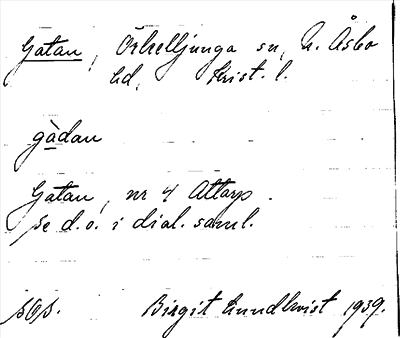 Gatan, Örkelljunga sn, N. Åsbo
hd, Krist. l.
gàdan
Gatan, nr 4 Attarp.
Se d.o. i dial. saml.
Birgit Lundkvist 1939.